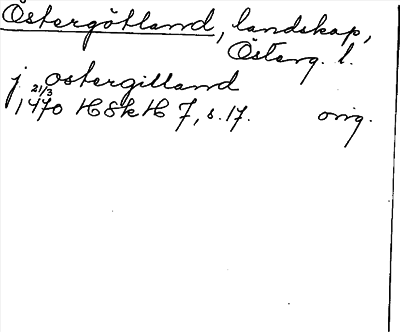 Östergötland, landskap,
Österg. l.
j ostergilland
21/3
1470 HSkH 7, s. 17. orig.